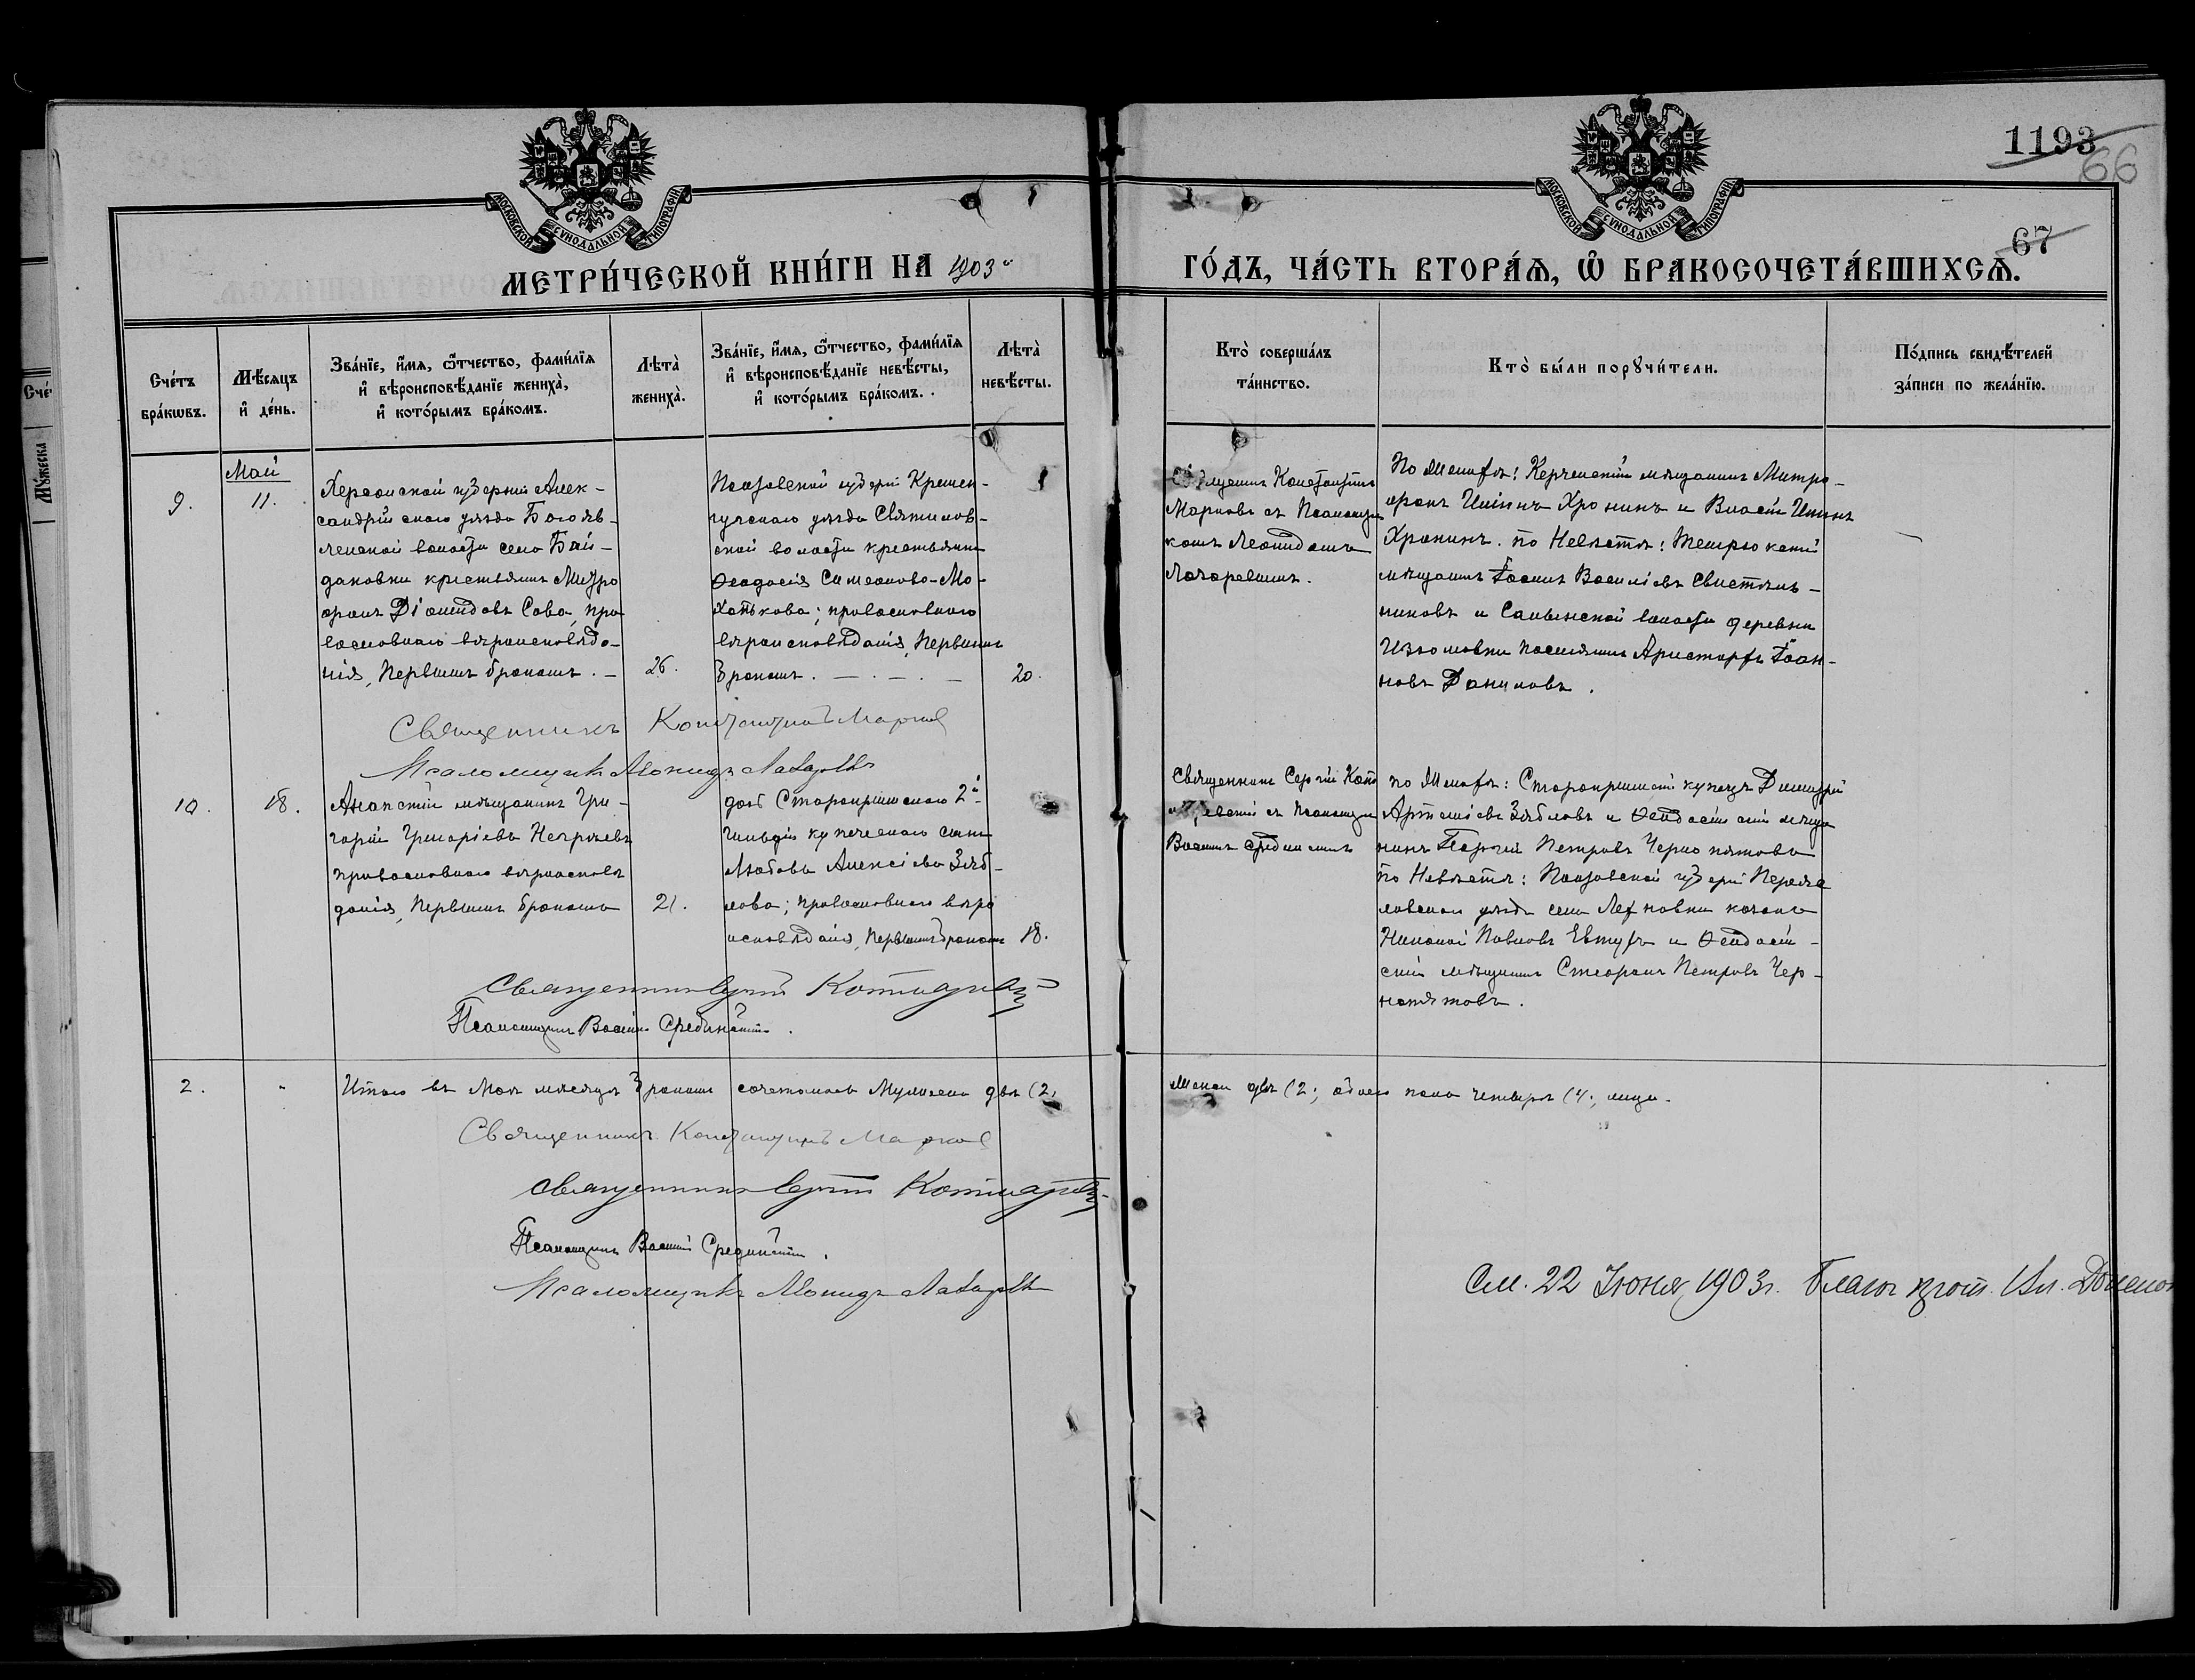 МОСКОВСКОЙ СѴНОДАЛЬНОЙ ТИПОГРАФІИ
МОСКОВСКОЙ СѴНОДАЛЬНОЙ ТИПОГРАФІИ
1193
66
67
МЕТРИ́ЧЕСКОЙ КНИ́ГИ НА 1903й
ГО́ДЪ, ЧА́СТЬ ВТОРА́Я, Ѡ БРАКОСОЧЕТА́ВШИХСЯ.
Сче́тъ бра́кѡвъ.
Мѣ́сяцъ и де́нь.
Зва́нїе, и́мя, ѻ́тчество, фами́лїя
и вѣроисповѣ́данїе жениха̀,
и кото́рымъ бра́комъ.
Лѣта̀ жениха̀.
Зва́нїе, и́мя, ѻ́тчество, фами́лїя
и вѣроисповѣ́данїе невѣ́сты,
и кото́рымъ бра́комъ.
Лѣта̀ невѣ́сты.
Кто̀ соверша́лъ та́инство.
Кто̀ бы́ли порꙋчи́тели.
По́дпись свидѣ́телей за́писи по жела́нїю.
Май
9.
11.
Херсонской губерніи Алек-
сандрійскаго уѣзда Богояв-
ленской волости села Бай-
даковки крестьянинъ Митро
фанъ Діомидовъ Сова, пра
вославнаго вѣроисповѣда-
нія, Первымъ бракомъ. —
26.
Полтавской губерніи Кремен-
чугскаго уѣзда Святилов-
ской волости крестьянка
Ѳеодосія Симеонова-Мо-
хонькова; православнаго
вѣроисповѣданія, Первымъ
бракомъ. — . — . —
20.
Священникъ Константинъ
Марковъ съ Псаломщи
комъ Леонидомъ
Лазаревымъ.
По Женихѣ: Керченскій мѣщанинъ Митро-
фанъ Хронинъ и
Хронинъ. по Невѣстѣ: Темрюкскій
мѣщанинъ Іоаннъ Васильевъ Свистель-
никовъ и волости деревни
Изюмовки поселянинъ Аристархъ Іоан-
новъ Даниловъ.
Священникъ Константинъ Марковъ
Псаломщикъ Леонидъ Лазаревъ
10.
18.
Анапскій мѣщанинъ Гри-
горій Григоріевъ
православнаго вѣроисповѣ
данія, Первымъ бракомъ
21.
дочь Старокрымскаго 2й
гильдіи купеческаго сына
Любовь Алексіева Зяб-
лова; православнаго вѣро
исповѣданія, Первымъ бракомъ
18.
Священникъ Сергій
съ Псаломщик
Василіемъ
по Женихѣ: Старокрымскій купецъ Димитрій
Зябловъ и Ѳеодосійскій мѣща
нинъ Георгій Петровъ Чернопятовъ
По Невѣстѣ: Полтавской губерніи Переяс
лавскаго уѣзда села козакъ
Николай Павловъ Евтухъ и Ѳеодосій-
скій мѣщанинъ Стефанъ Петровъ Чер-
нопятовъ.
Священникъ Сергій
Псаломщикъ Василій
2.
Итого въ Маѣ мѣсяцѣ бракомъ сочеталось Мужеска два (2;
Женска двѣ (2; обоего пола четыре (4; лица.
Священникъ Константинъ Марковъ
Священникъ Сергій
Псаломщикъ Василій
Псаломщикъ Леонидъ Лазаревъ
См. 22 Іюня 1903 г. Благоч. прот. Вл.